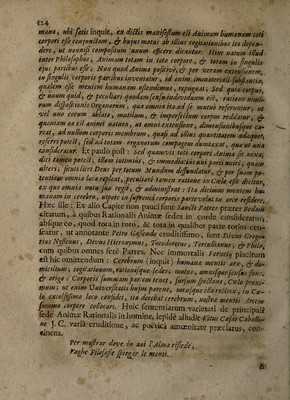 124
mana, ubi satis inquit, ex dictis manifestum est Animam humanam toti
corpori esse conjunctam, & hujus motus ab illius cogitationibus ita depen-
dere, ut nonnisi compositum unum efficere dicantur. Hinc natum illud
inter Philosophos, Animam totam in toto corpore, & totam in singulis
ejus partibus esse; Non quod Anima passivè, & per veram extensionem,
in singulis corporis partibus inveniatur, id enim immateriali substantia,
qualem esse mentem humanam ostendimus, repugnat; Sed quia unum
sit, & quodammodo individuum est, ratione nimi-
rum dispositionis Organorum, quæ omnia ita ad se mutuò referuntur, ut
vel uno eorum ablato, mutilum, & imperfectum corpus reddatur, &
quoniam ea est animi natura, ut omni extensioni, dimensionibusque ca-
reat, ad nullum corporis membrum, quasi ad illius quantitatem adæquet,
referri potest, sed ad totam organorum compagem dumtaxat, quæ ut una
consideratur. Et paulò post: Sed quamvis toti corpori Anima sit nexa,
dici tamen potest, illam intimiùs, & immediatiùs uni parti uniri, quàm
alteri; sicuti licet Deus per totum Mundum diffundatur, & per suam po-
tentiam omnia loca repleat, peculiari tamen ratione in Cœlo esse dicitur,
ex quo omnia nutu suo regit, & administrat: Ita dicimus mentem hu-
manam in cerebro, utpote in supremâ corporis parte veluti in arce residere.
Hæc ille: Ex alio Capite non pauci sunt Sancti Patres præter
sicatum, à quibus Rationalis Animæ sedes in corde consideratur,
absque eo, quod tota in toto, & tota in qualibet parte totius exti-
featur, ut annotante Petro Gassendo eruditissimo, sunt Divus Grego-
rius Nyssenus, Divus Hieronymus, Theodoretus, Tertullianus, & Philo,
cum quibus omnes ferè Patres. Nec immemorialis Fernelij placitum
est hîc omittendum: Cerebrum (inquit) humana mentis arx, & do-
micilium; cogitationum, rationisque sedes; motus, omnisque sensus fons;
& origo: Corporis summam parcem tenet, sursum spectans, Cœlo proxi-
mum; ac enim Universitatis hujus parens, in Cœ-
lo excelsissimo loco consedit, ita decebat cerebrum, nostra mentis arcem
summo corpore collocare. Huic sententiarum varietati de principali
sede Animæ Rationalis in homine, lepidè alludit Vitus Cæsar Caballo-
ne J. C. variâ eruditione, ac poëticâ amœnitate præclarus, con-
cinens.
Per mostrar dove in noi l'Alma risiede,
Vaghe Filosofie spiegar le menti.